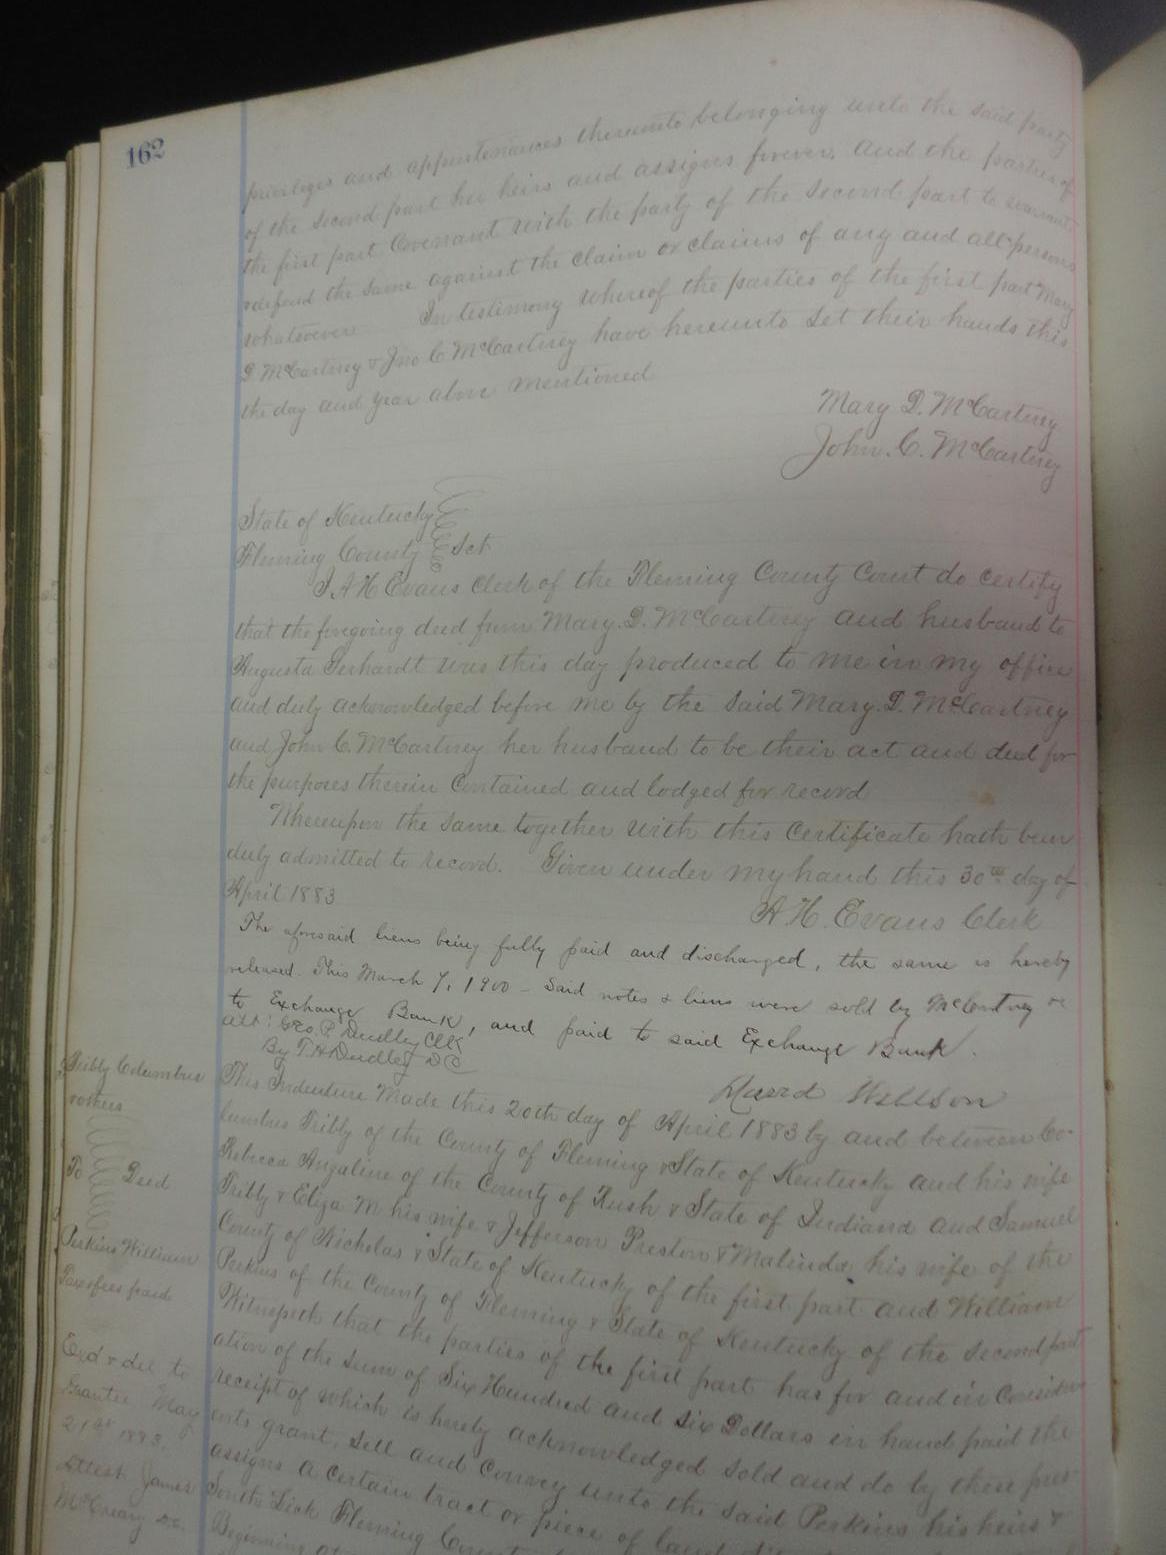 162
privileges and appurtenances thereunto belonging unto the said party
of the second part her heirs and assigns forever. And the parties of
the first part Covenant with the party of the second part to warrant
& defend the same against the claim or claims of any and all persons
whatsoever In testimony whereof the parties of the first part Mary
D. McCartney & Jno C. McCartney have hereunto set their hands this
the day and year above mentioned
Mary D. McCartney
John. C. McCartney
State of Kentucky
Fleming County Sct
I A H Evans Clerk of the Fleming County Court do certify
that the foregoing deed from Mary. D. McCartney and husband to
Augusta Gerhardt was this day produced to me in my office
and duly acknowledged before me by the said Mary. D. McCartney
and John C. McCartney her husband to be their act and deed for
the purposes therein Contained and lodged for record
Whereupon the same together with this Certificate hath been
duly admitted to record. Given under my hand this 30th day of
April 1883
A. H. Evans Clerk
The aforesaid liens being fully paid and discharged, the same is hereby
released. This March 7, 1900 - Said notes & liens were sold by McCartney
to Exchange Bank, and paid to said Exchange Bank.
att: Geo. P. Dudley Clk
By T. H. Dudley DC
Tribly Columbus
& others
To Deed
Perkins William
Tax & fees paid
Exd & del to
Grantee May
21st 1883.
Attest James
McCreary D.C.
This Indenture Made this 20th day of April 1883 by and between Co-
lumbus Tribly of the County of Fleming & State of Kentucky and his wife
Rebecca Angaline of the County of Rush & State of Indiana and Samuel
Tribly & Eliza M his wife & Jefferson Preston & Malinda his wife of the
County of Nicholas & State of Kentucky of the first part and William
Perkins of the County of Fleming & State of Kentucky of the second part
Witnesseth that the parties of the first part has for and in Consider
ation of the sum of Six Hundred and six Dollars in hand paid the
receipt of which is hereby acknowledged sold and do by these pres-
ents grant, sell and Convey unto the said Perkins his heirs &
assigns a certain tract or piece of land
South Lick Fleming
Beginning at